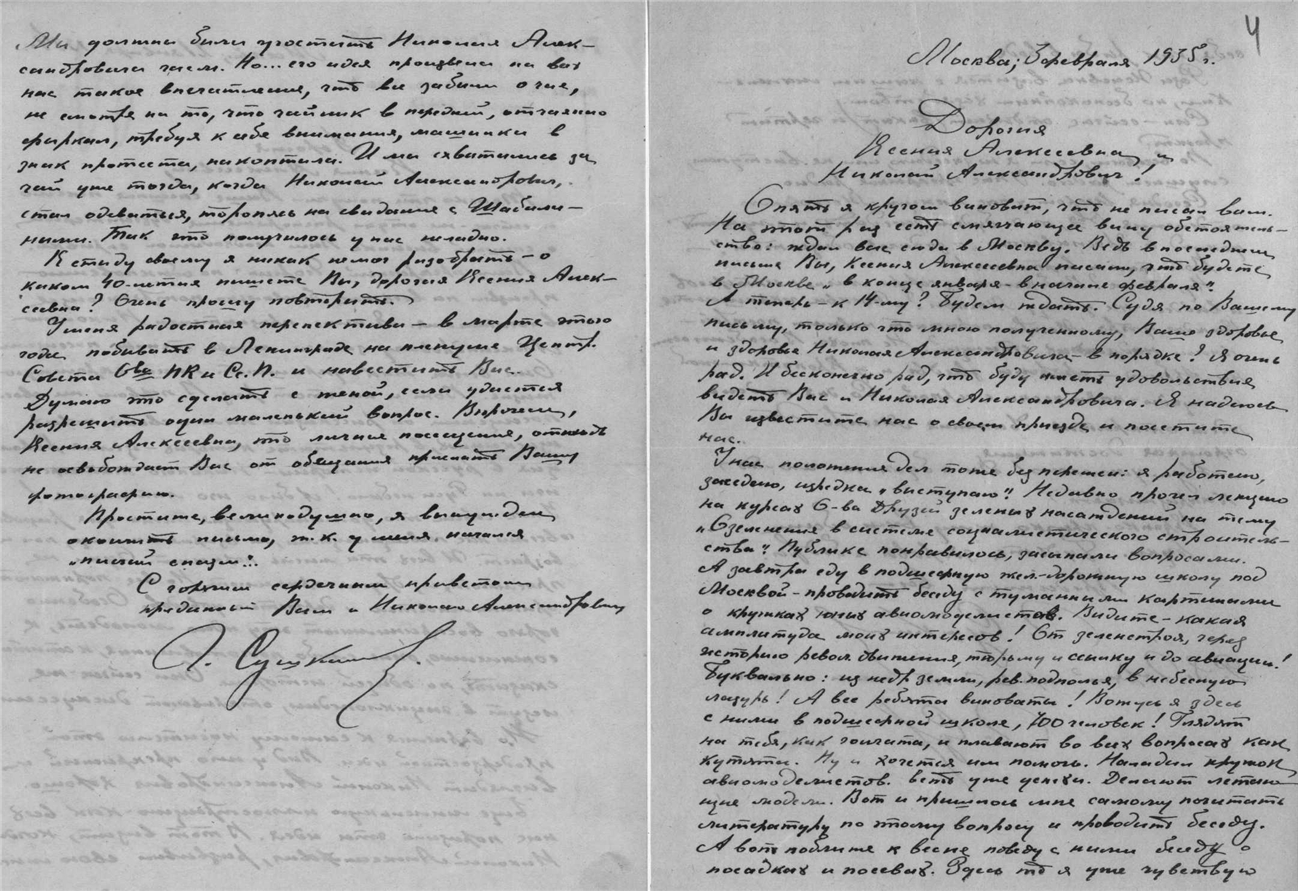 Мы должны были угостить Николая Алек-
сандровича чаем. Но... его идея произвела на всех
нас такое впечатление, что все забыли о чае,
не смотря на то, что чайник в передней, отчаянно
фыркал, требуя к себе внимания, машинка в
знак протеста, накоптила. И мы схватились за
чай уже тогда, когда Николай Александрович,
стал одеваться, торопясь на свидание с Шабали-
ными. Так что получилось у нас неладно.
К стыду своему я никак не мог разобрать – о
каком 40-летии пишете Вы, дорогая Ксения Алек-
сеевна? Очень прошу повторить.
У меня радостная перспектива – в марте этого
года побывать в Ленинграде на пленуме Центр.
Совета О-ва ПК и Сс. П. и навестить Вас.
Думаю это сделать с женой, если удастся
разрешить один маленький вопрос. Впрочем,
Ксения Алексеевна, это личное посещение, отнюдь
не освобождает Вас от обещания прислать Вашу
фотографию.
Простите, великодушно, я вынужден
окончить письмо, т.к. у меня начался
"писчий спазм".
С горячим сердечным приветом
преданный Вам и Николаю Александровичу
4
Москва; 3 февраля 1935 г.
Дорогие
Ксения Алексеевна и
Николай Александрович!
Опять я кругом виноват, что не писал вам.
На этот раз есть смягчающее вину обстоятель-
ство: ждал вас сюда в Москву. Ведь в последнем
письме Вы, Ксения Алексеевна писали, что будете
в Москве "в конце января - в начале февраля".
А теперь – к 14-му? Будем ждать. Судя по Вашему
письму, только что мною полученному, Ваше здоровье
и здоровье Николая Александровича – в порядке? Я очень
рад. И бесконечно рад, что буду иметь удовольствие
видеть Вас и Николая Александровича. Я надеюсь
Вы известите нас о своем приезде и посетите
нас.
У нас положение дел тоже без перемен: я работаю,
заседаю, изредка "выступаю". Недавно прочел лекцию
на курсах О-ва Друзей зеленых насаждений на тему
"Озеленения в системе социалистического строитель-
ства". Публике понравилось, засыпали вопросами.
А завтра еду в подшефную жел-дорожную школу под
Москвой – проводить беседу с туманными картинами
о кружках юных авиомоделистов. Видите – какая
амплитуда моих интересов! От зеленстроя, через
историю револ. движения, тюрьму и ссылку и до авиации!
Буквально: из недр земли, рев. подполья, в небесную
лазурь! А все ребята виноваты! Вожусь я здесь
с ними в подшефной школе, 700 человек! Глядят
на тебя, как гончата, и плавают во всех вопросах как
кутята. Ну и хочется им помочь. Наладил кружок
авиомоделистов. Есть уже успехи. Делают летаю-
щие модели. Вот и пришлось мне самому почитать
литературу по этому вопросу и проводить беседу.
А вот поближе к весне поведу с ними беседу о
посадках и посевах. Здесь то я уже чувствую